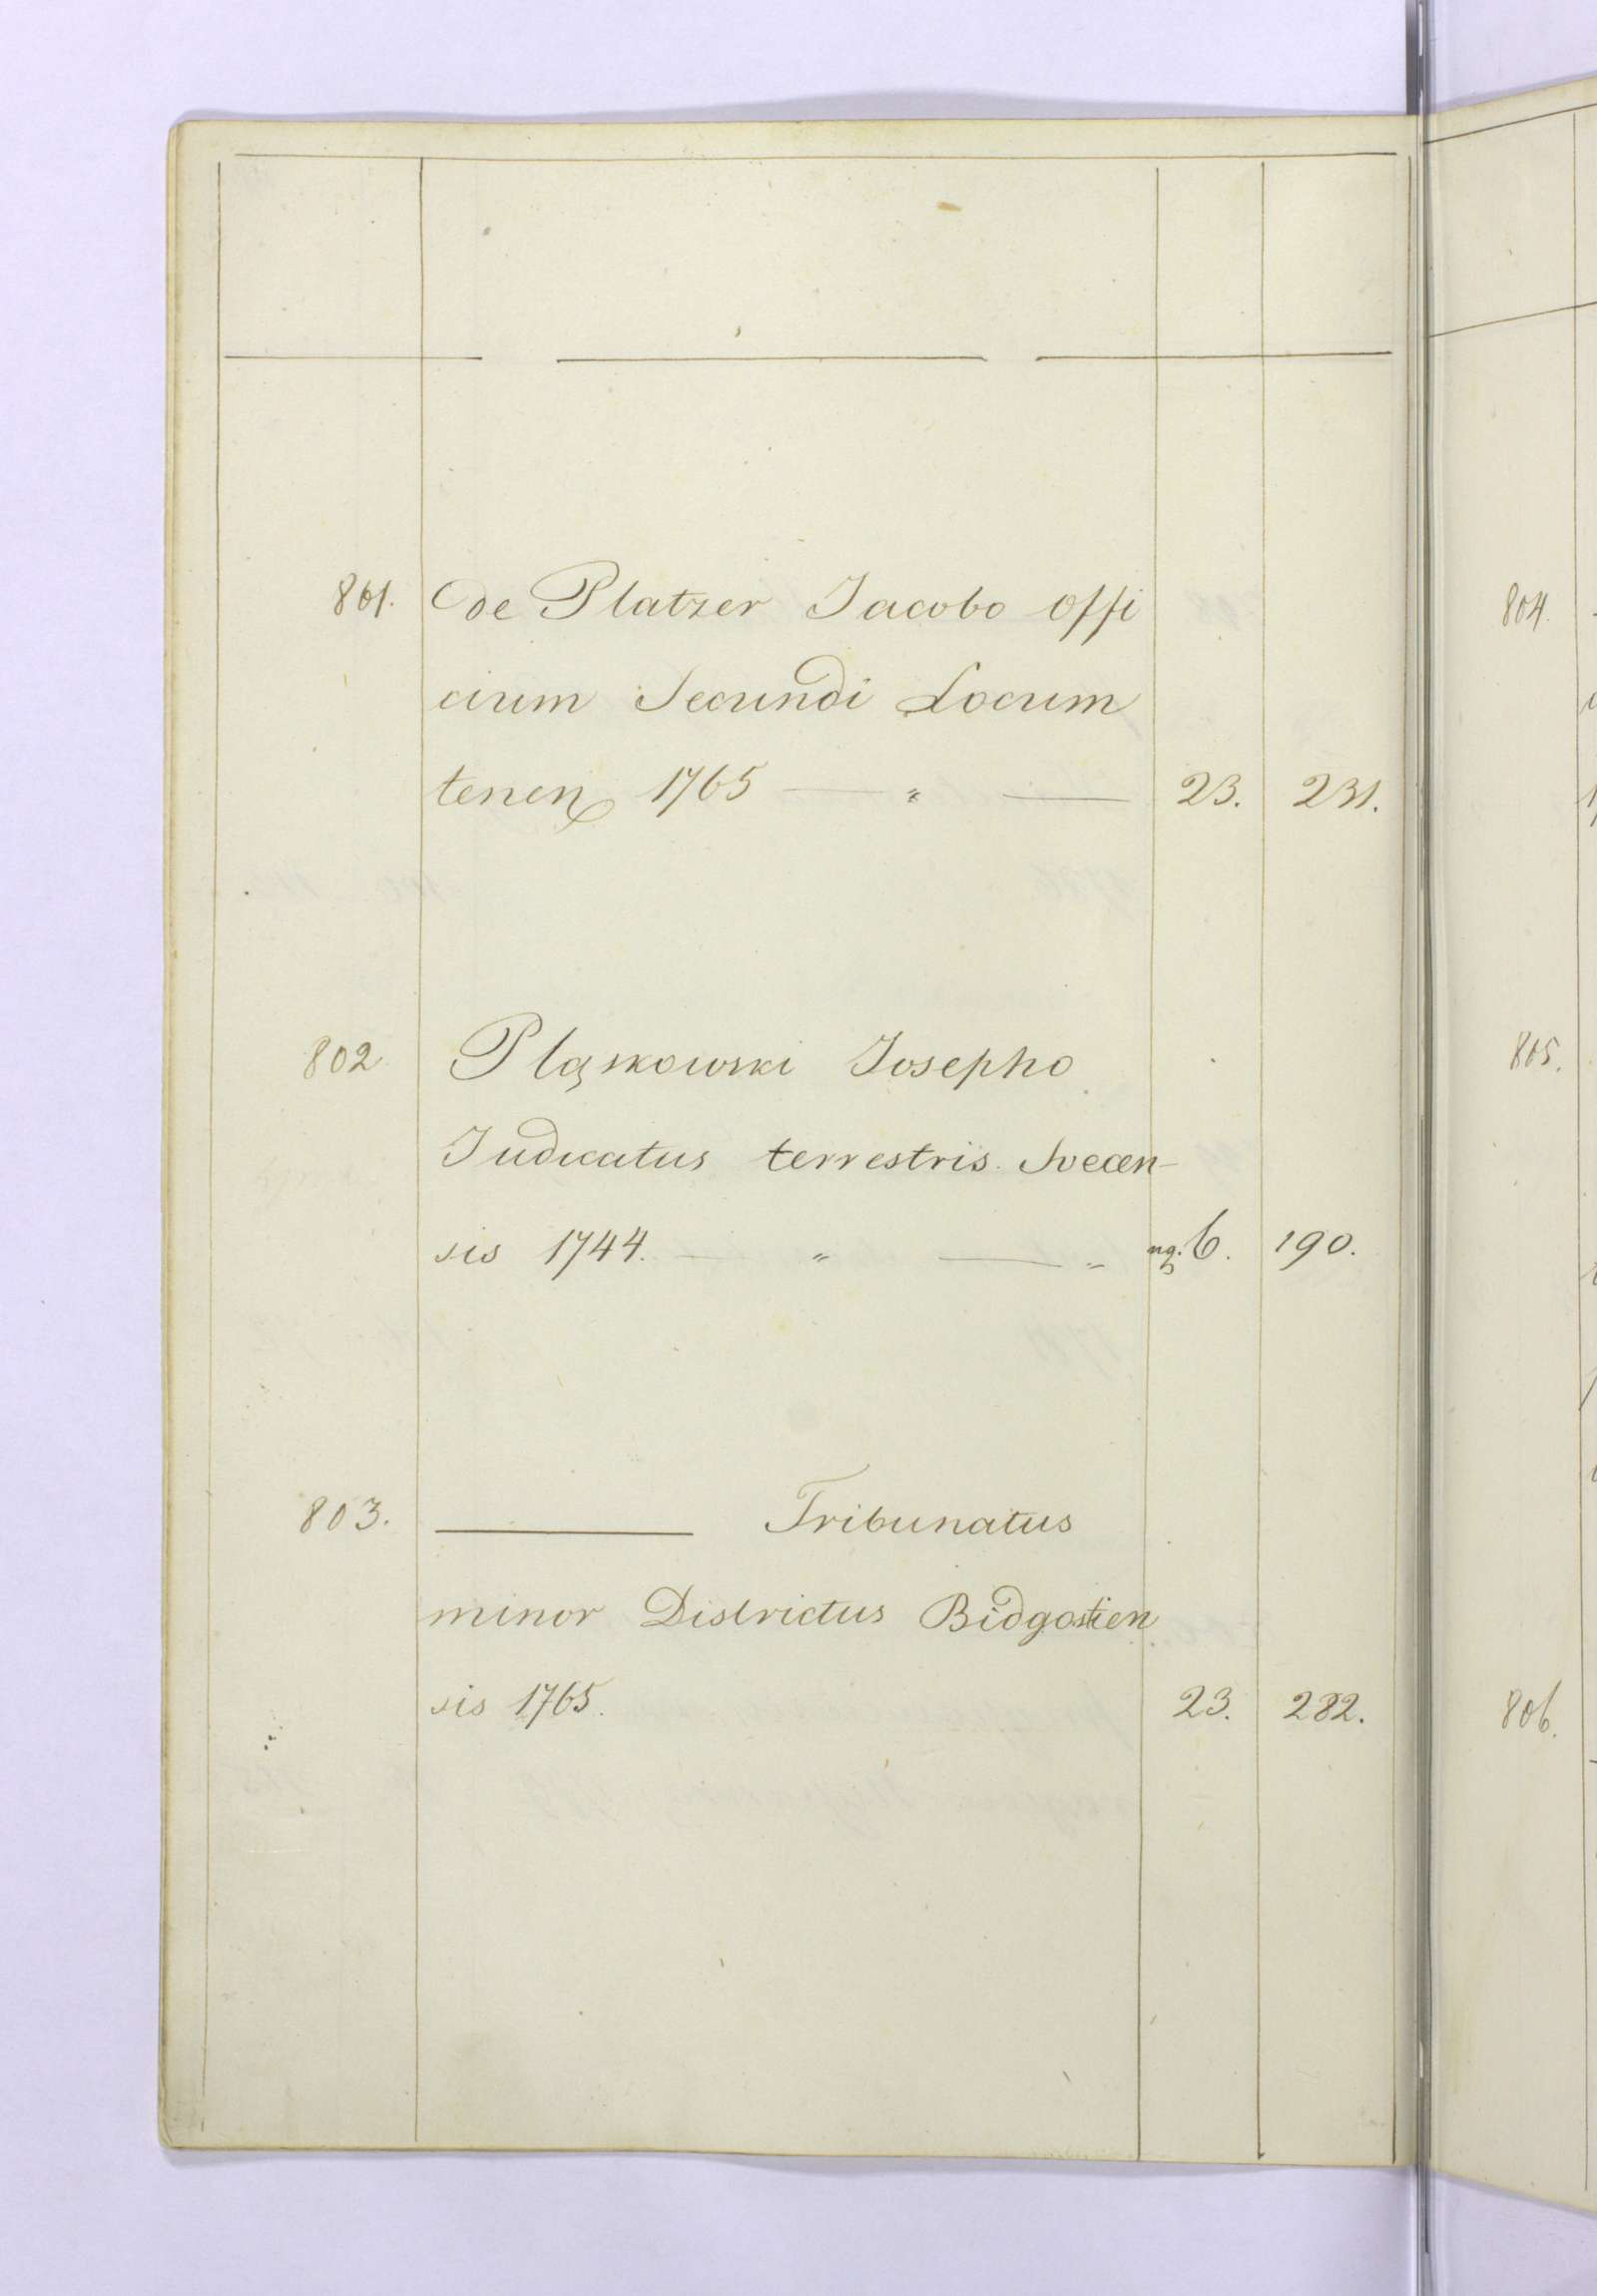 801. de Platzer Jacobo Offi
cium Secundi Locum
tenen 1765 — " — 23. 231.
802 Pląskowski Josepho
Judicatus terrestris Svecen-
sis 1744. — " — " ng. 6. 190.
803. — Tribunatus
minor Districtus Bidgostien
sis 1765. 23. 282.
804.
805.
806.